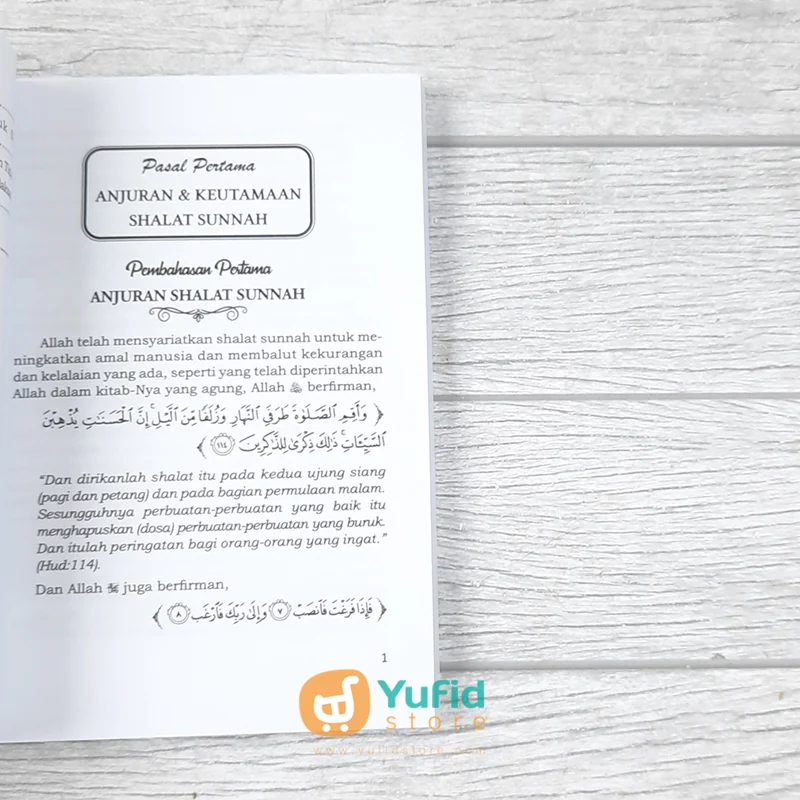 Pasal Pertama
ANJURAN & KEUTAMAAN
SHALAT SUNNAH
Pembahasan Pertama
ANJURAN SHALAT SUNNAH
Allah telah mensyariatkan shalat sunnah untuk me-
ningkatkan amal manusia dan membalut kekurangan
dan kelalaian yang ada, seperti yang telah diperintahkan
Allah dalam kitab-Nya yang agung, Allah ﷻ berfirman,
﴿ وَأَقِمِ الصَّلَوٰةَ طَرَفَيِ النَّهَارِ وَزُلَفًا مِّنَ الَّيْلِ ۚ إِنَّ الْحَسَنَٰتِ يُذْهِبْنَ
السَّيِّـَٔاتِ ۚ ذَٰلِكَ ذِكْرَىٰ لِلذَّٰكِرِينَ ١١٤ ﴾
“Dan dirikanlah shalat itu pada kedua ujung siang
(pagi dan petang) dan pada bagian permulaan malam.
Sesungguhnya perbuatan-perbuatan yang baik itu
menghapuskan (dosa) perbuatan-perbuatan yang buruk.
Dan itulah peringatan bagi orang-orang yang ingat.”
(Hud:114).
Dan Allah ﷻ juga berfirman,
﴿ فَإِذَا فَرَغْتَ فَانصَبْ ٧ وَإِلَىٰ رَبِّكَ فَارْغَب ٨ ﴾
1
Yufid
store
www.yufidstore.com